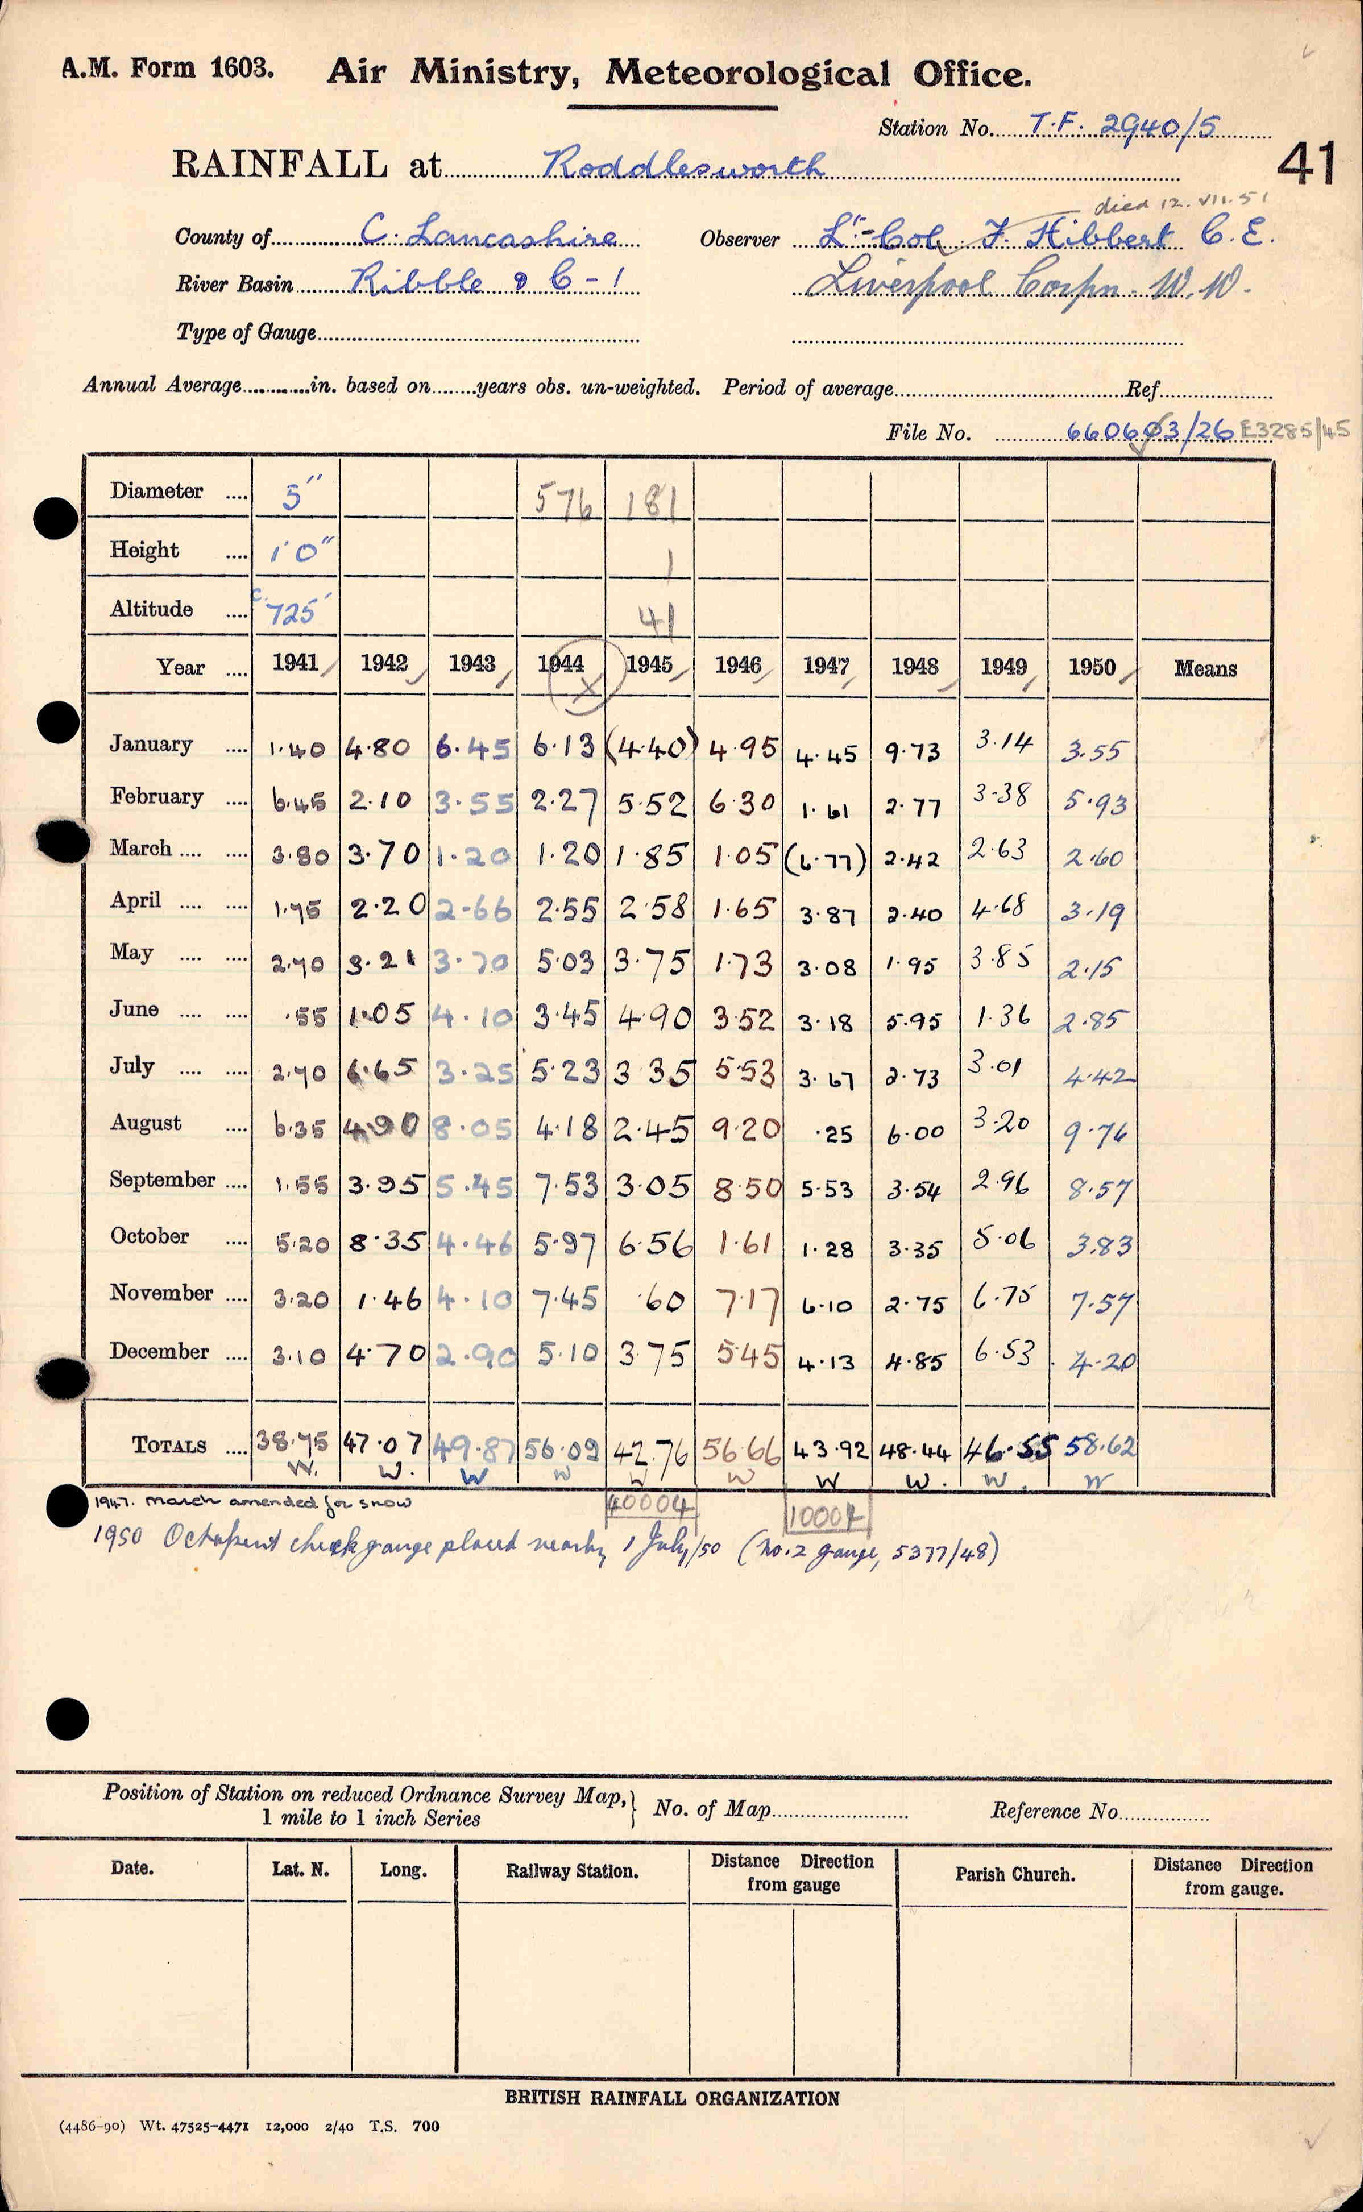 A.M. Form 1603. Air Ministry, Meteorological Office.
Station No. T.F. 2940/5
41
RAINFALL at Roddlesworth
died 12.VII.51
County of C. Lancashire Observer Lt-Col. F. Hibbert C.E.
River Basin Ribble & C-1 Liverpool Corpn. W.W.
Type of Gauge
Annual Average in. based on years obs. un-weighted. Period of average Ref
File No. 660603/26 E3285/45
Diameter .... 5" 576 181
Height .... 1'0" 1
Altitude .... c. 725' 41
Year .... 1941 1942 1943 1944 1945 1946 1947 1948 1949 1950 Means
January .... 1.40 4.80 6.45 6.13 (4.40) 4.95 4.45 9.73 3.14 3.55
February .... 6.45 2.10 3.55 2.27 5.52 6.30 1.61 2.77 3.38 5.93
March .... .... 3.80 3.70 1.20 1.20 1.85 1.05 (6.77) 2.42 2.63 2.60
April .... .... 1.75 2.20 2.66 2.55 2.58 1.65 3.87 2.40 4.68 3.19
May .... .... 2.70 3.21 3.70 5.03 3.75 1.73 3.08 1.95 3.85 2.15
June .... .... .55 1.05 4.10 3.45 4.90 3.52 3.18 5.95 1.36 2.85
July .... .... 2.70 6.65 3.25 5.23 3.35 5.53 3.67 2.73 3.01 4.42
August .... 6.35 4.90 8.05 4.18 2.45 9.20 .25 6.00 3.20 9.76
September .... 1.55 3.95 5.45 7.53 3.05 8.50 5.53 3.54 2.96 8.57
October .... 5.20 8.35 4.46 5.97 6.56 1.61 1.28 3.35 5.06 3.83
November .... 3.20 1.46 4.10 7.45 .60 7.17 6.10 2.75 6.75 7.57
December .... 3.10 4.70 2.90 5.10 3.75 5.45 4.13 4.85 6.53 4.20
TOTALS .... 38.75 47.07 49.87 56.09 42.76 56.66 43.92 48.44 46.55 58.62
W. W. W W W W W W. W. W
1947. March amended for snow 40004 10001
1950 Octapent check gauge placed nearby 1 July/50 (No.2 gauge, 5377/48)
Position of Station on reduced Ordnance Survey Map, No. of Map Reference No
1 mile to 1 inch Series
Date. Lat. N. Long. Railway Station. Distance Direction from gauge Parish Church. Distance Direction from gauge.
BRITISH RAINFALL ORGANIZATION
(4486-90) Wt. 47525-4471 12,000 2/40 T.S. 700